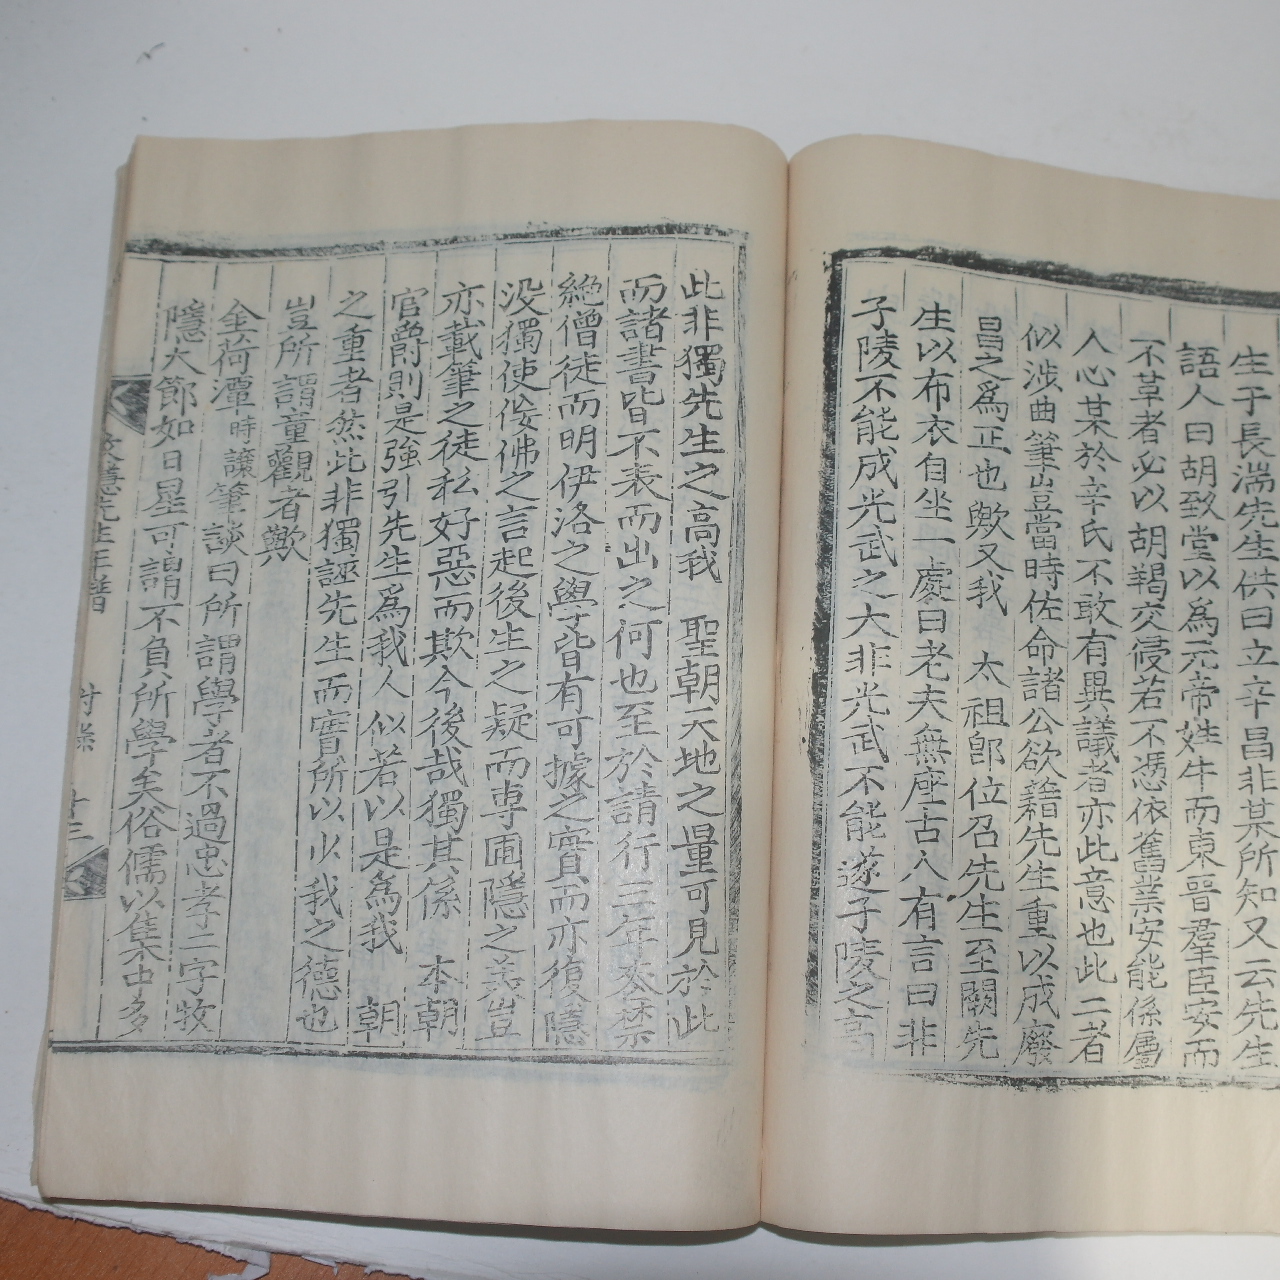 生于長湍先生供曰立辛昌非某所知又云先生
語人曰胡致堂以爲元帝姓牛而東晉羣臣安而
不革者必以胡羯交侵若不憑依舊業安能係屬
人心某於辛氏不敢有異議者亦此意也此二者
似涉曲筆豈當時佐命諸公欲藉先生重以成廢
昌之爲正也歟又我 太祖卽位召先生至闕先
生以布衣自坐一處曰老夫無座古人有言曰非
子陵不能成光武之大非光武不能遂子陵之高
此非獨先生之高我 聖朝天地之量可見於此
而諸書皆不表而出之何也至於請行三年喪禁
絶僧徒而明伊洛之學皆有可據之實而亦復隱
沒獨使佞佛之言起後生之疑而專圃隱之美豈
亦載筆之徒私好惡而欺今後哉獨其係 本朝
官爵則是強引先生爲我人 似若以是爲我 朝
之重者然此非獨誣先生而實所以少我之德也
豈所謂童觀者歟
金荷潭時讓筆談曰所謂學者不過忠孝二字牧
隱大節如日星可謂不負所學矣俗儒以集中多
牧隱先生年譜 附錄 十三